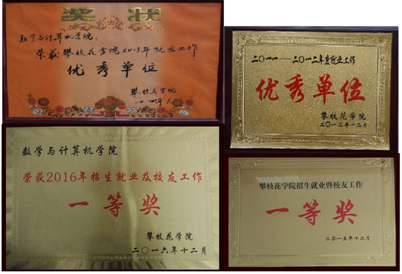 奖状
数学与计算机学院:
荣获攀枝花学院2013年就业工作
优秀单位
攀枝花学院
二〇一一——二〇一二年度就业工作
优秀单位
攀枝花学院
二〇一二年十二月
数学与计算机学院
荣获2016年招生就业及校友工作
一等奖
攀枝花学院
二〇一六年十二月
攀枝花学院招生就业暨校友工作
一等奖
二〇一五年十二月